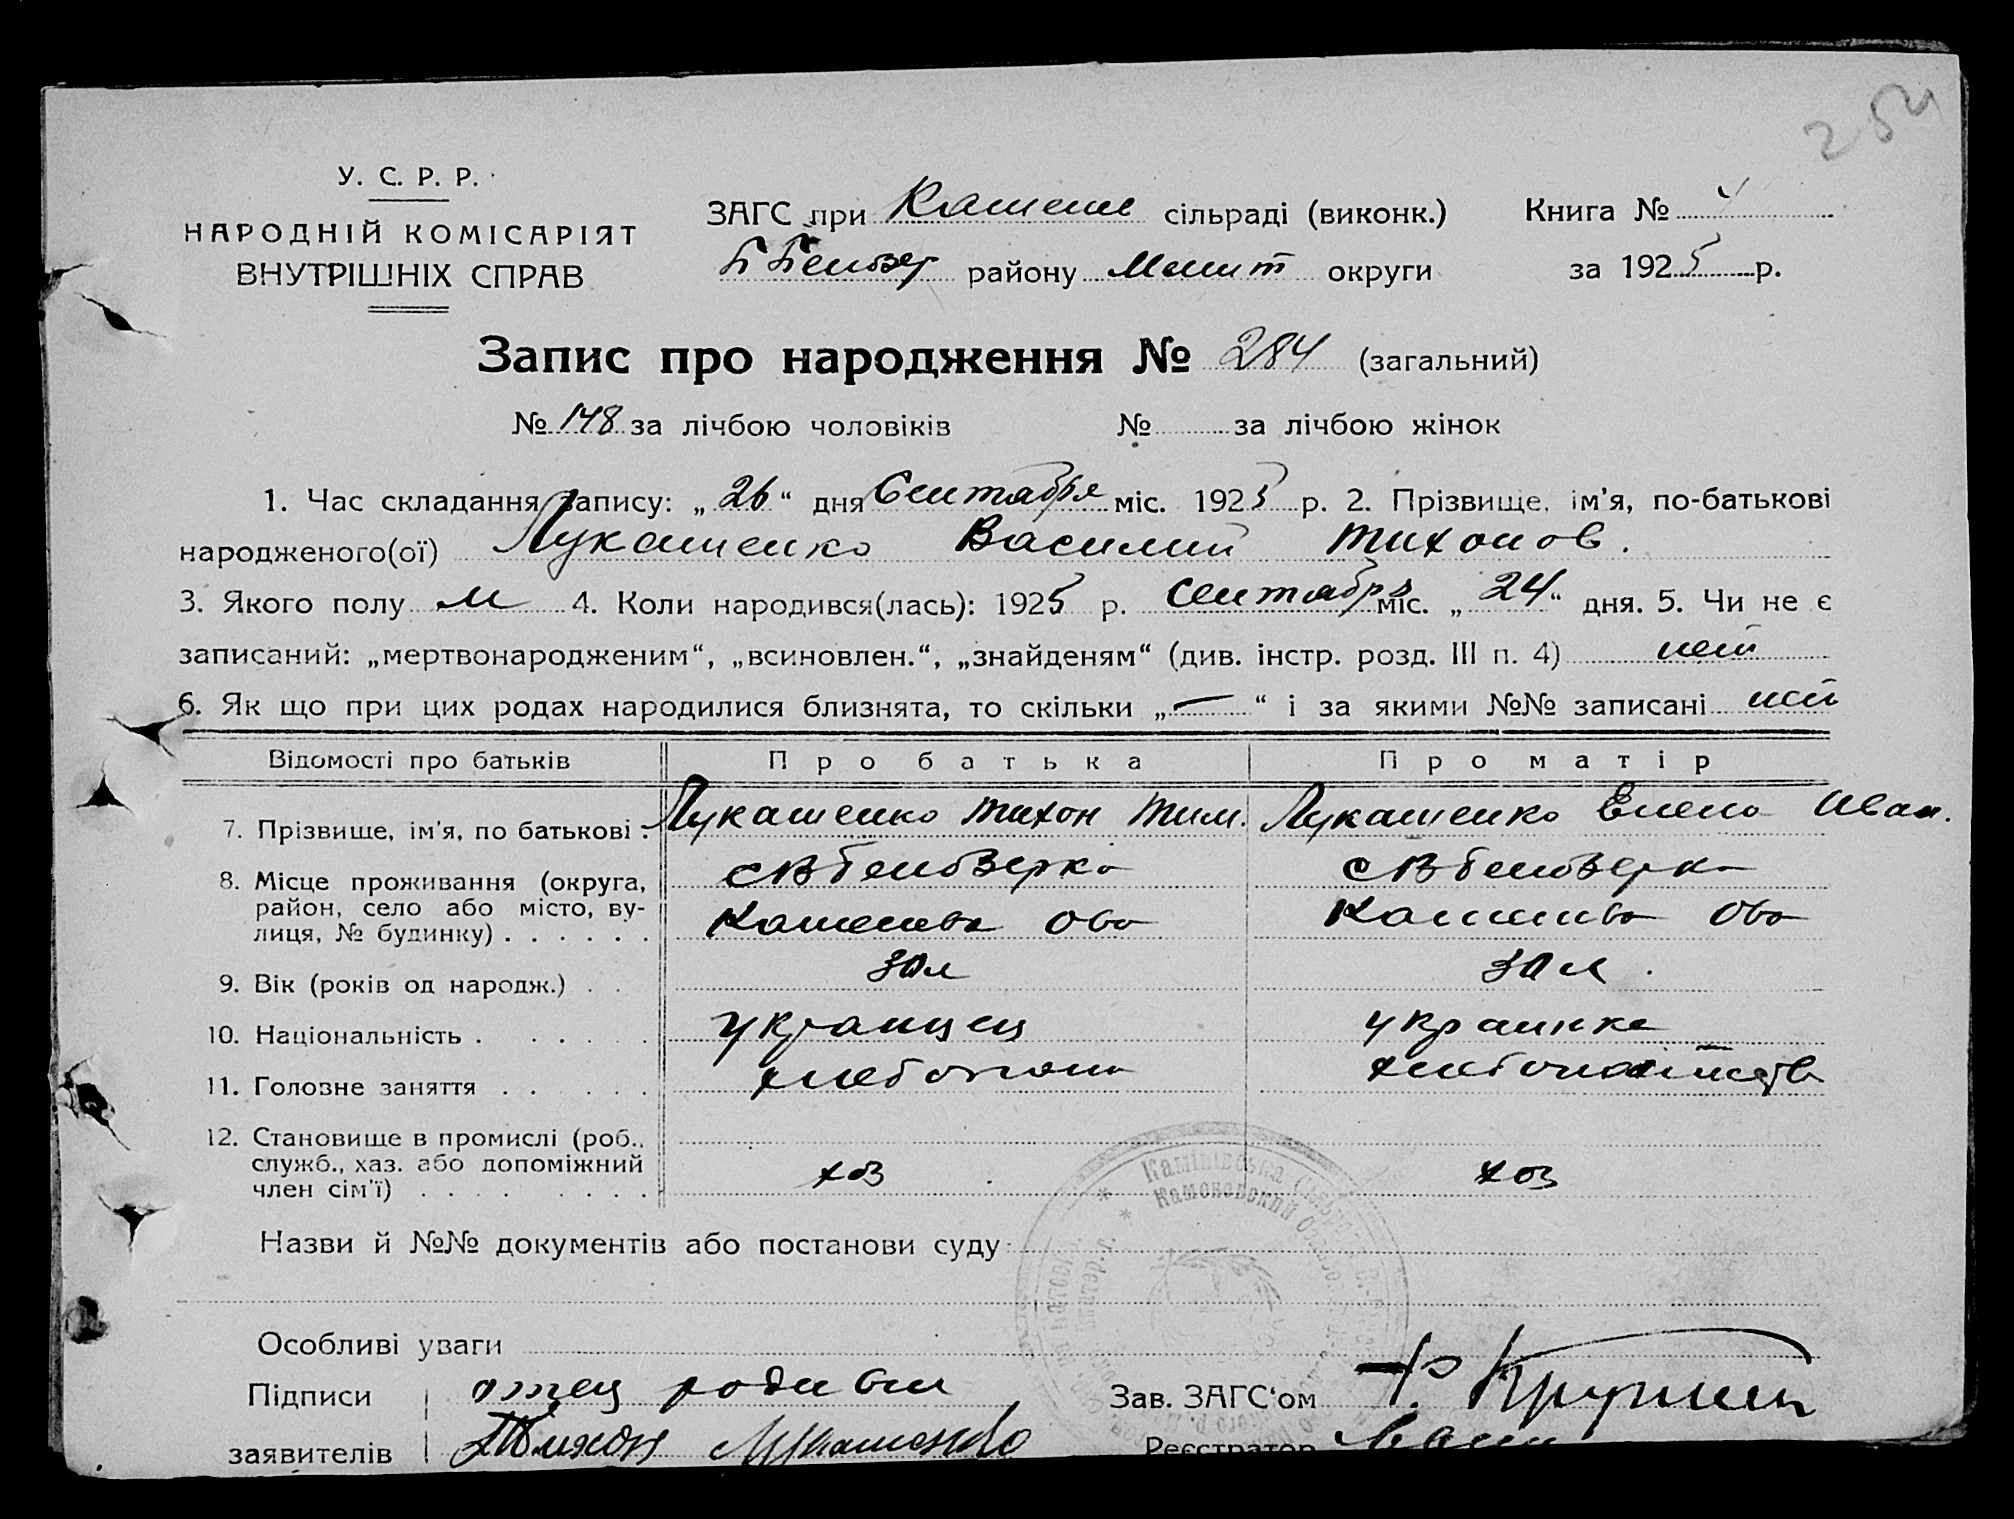 254
У. С. Р. Р.
НАРОДНІЙ КОМІСАРІЯТ
ВНУТРІШНІХ СПРАВ
ЗАГС при Каменс сільраді (виконк.) Книга №
району Мелит округи за 1925 р.
Запис про народження № 284 (загальний)
№ 148 за лічбою чоловіків № за лічбою жінок
1. Час складання запису: „26“ дня Сентября міс. 1925 р. 2. Прізвище, ім'я, по-батькові
народженого(ої) Лукашенко Василий Тихонов.
3. Якого полу м 4. Коли народився(лась): 1925 р. Сентабря міс. „24“ дня. 5. Чи не є
записаний: „мертвонародженим“, „всиновлен.“, „знайденям“ (див. інстр. розд. III п. 4) нет
6. Як що при цих родах народилися близнята, то скільки „—“ і за якими №№ записані нет
Відомості про батьків Про батька Про матір
7. Прізвище, ім'я, по батькові Лукашенко Тихон Тим. Лукашенко Елена Иван.
8. Місце проживання (округа,
район, село або місто, ву-
лиця, № будинку)
9. Вік (років од народж.) 30 л 30 л.
10. Національність украинец украинка
11. Головне заняття
12. Становище в промислі (роб.,
служб., хаз. або допоміжний
член сім'ї) хоз хоз
Назви й №№ документів або постанови суду
Особливі уваги
Підписи отец Зав. ЗАГС'ом
заявителів Тихон Лукашенко Реєстратор